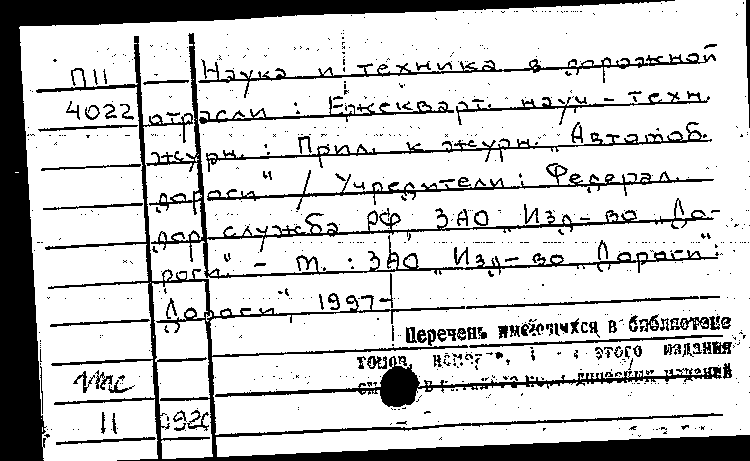 П11 Наука и техника в дорожной
4022 отрасли : Ежекварт. науч.-техн.
журн. : Прил. к журн. „Автомоб.
дороги" / Учредители: Федерал.
дор. служба РФ, ЗАО „Изд-во „До-
роги". - М. : ЗАО „Изд-во „Дороги":
Дороги", 1997-
Перечень имеющихся в библиотеке
томов, этого издания
изданий
11 0920